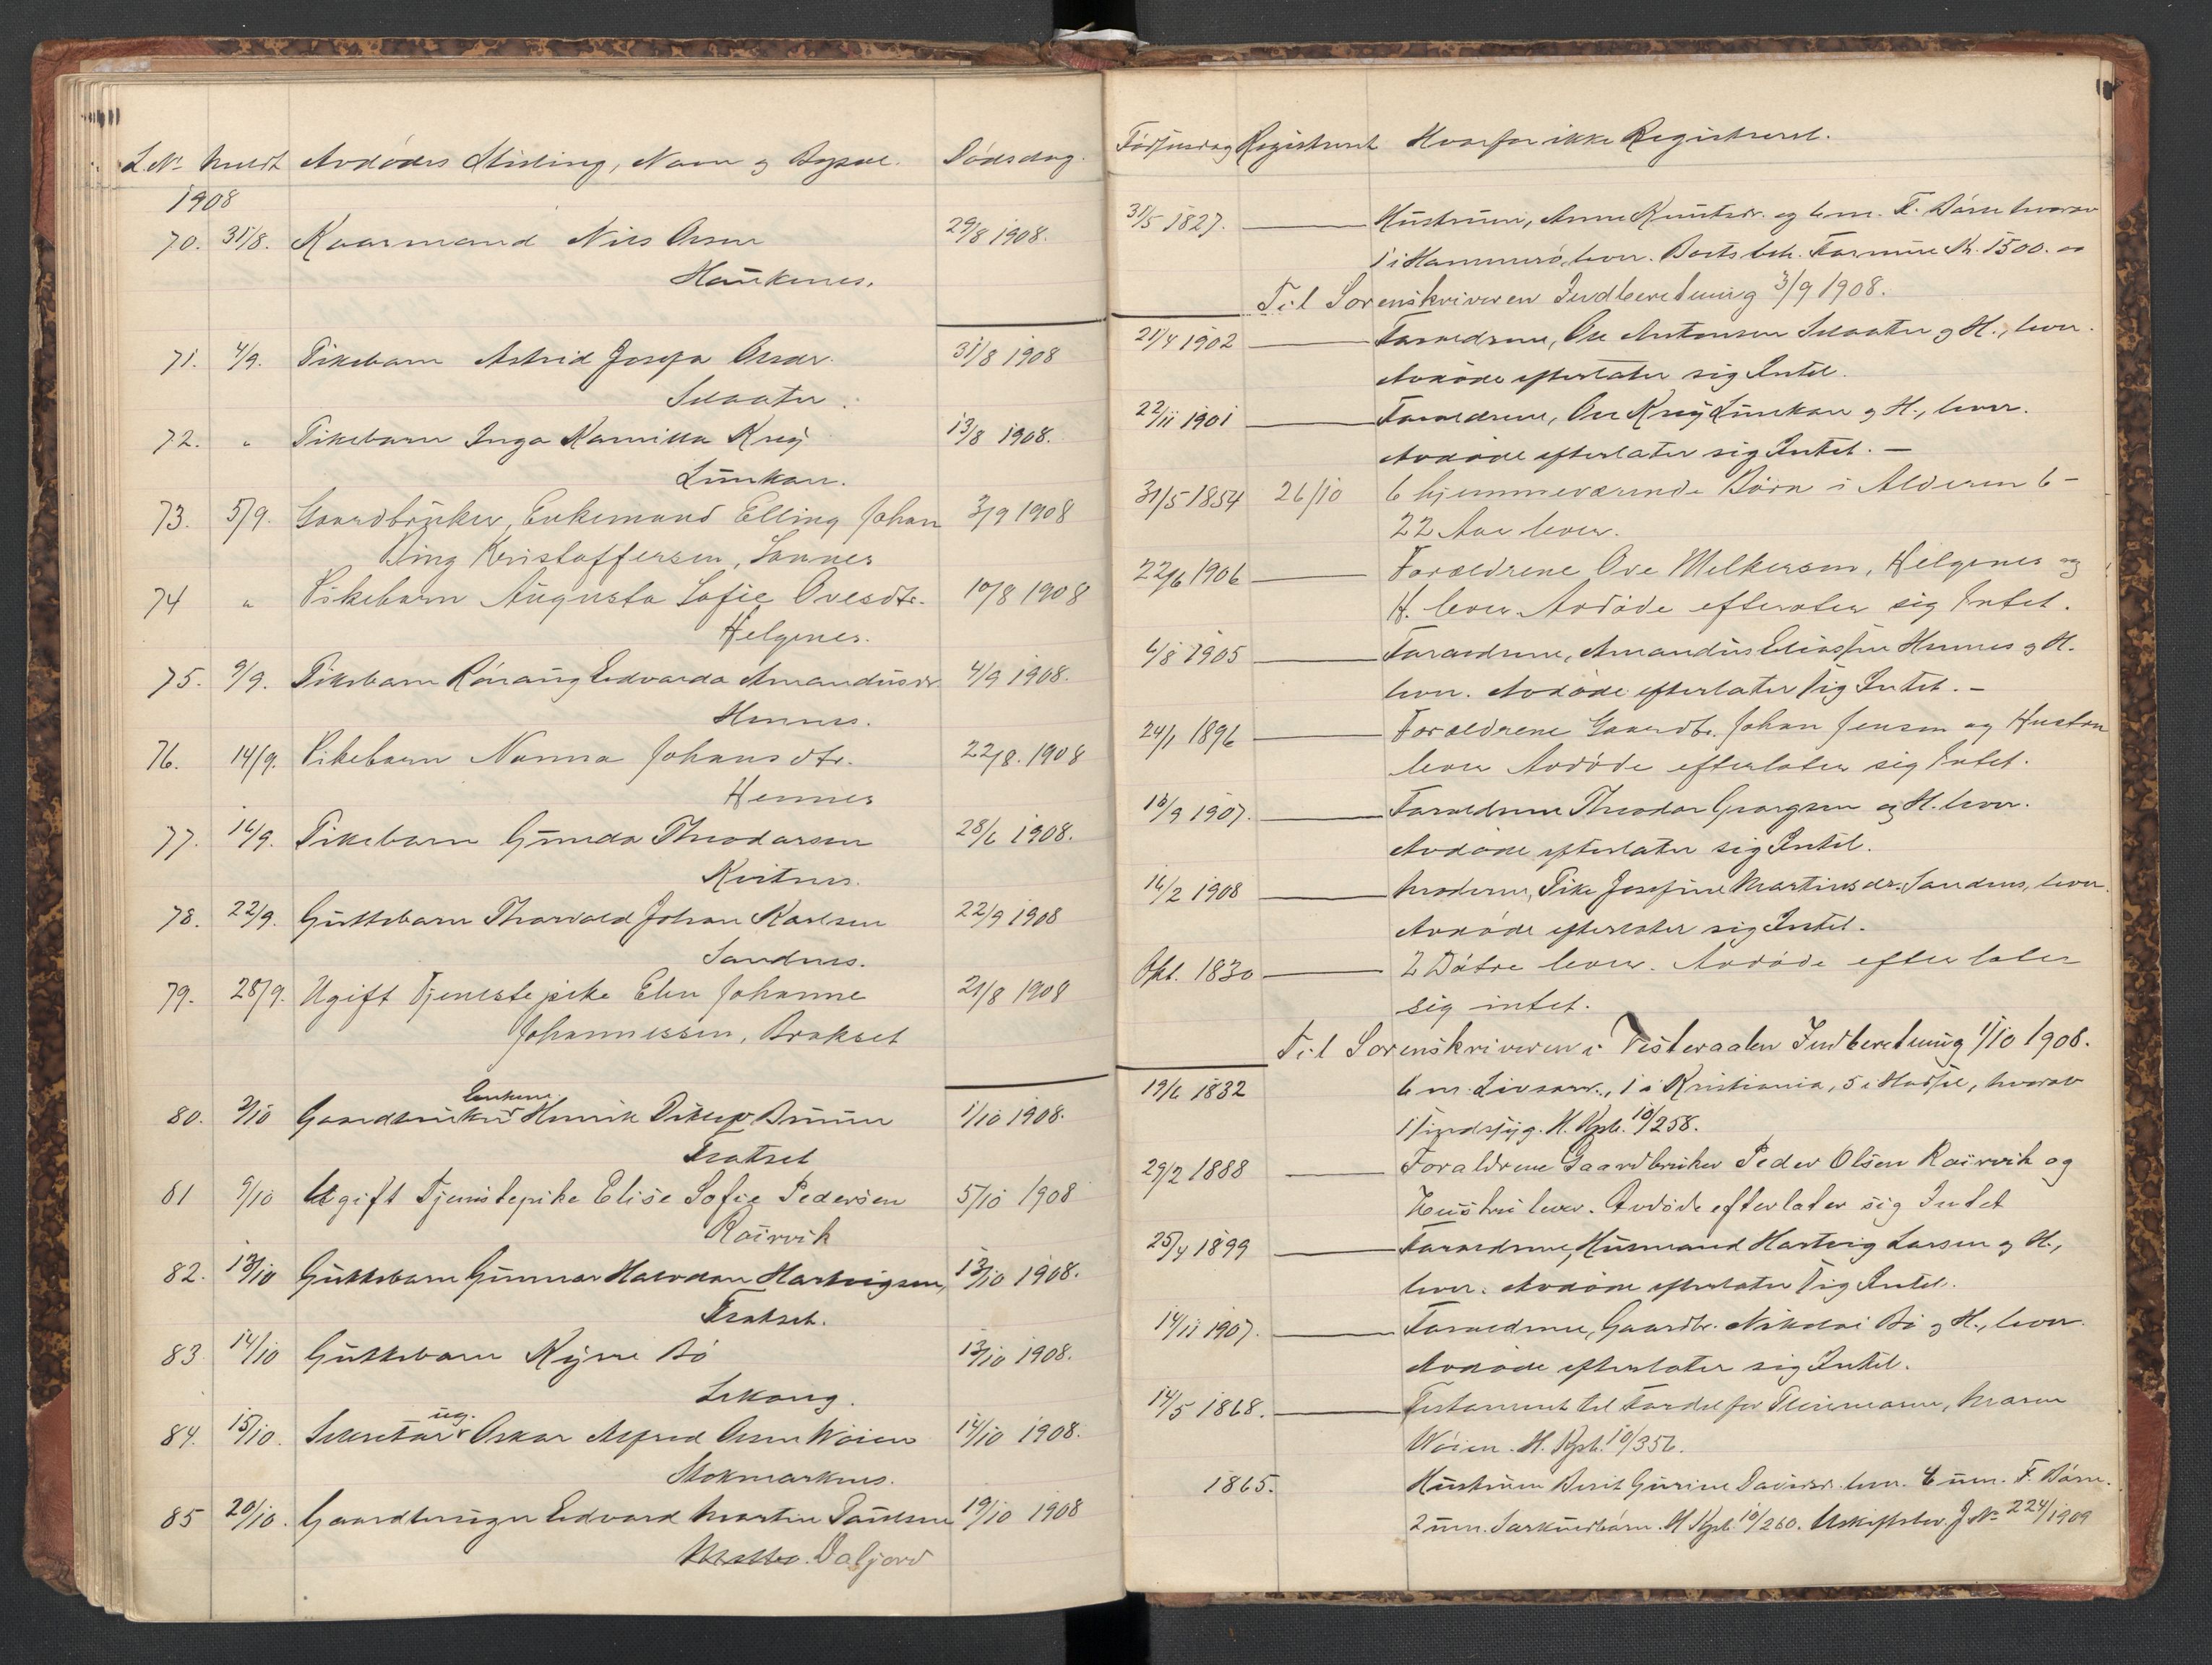 L.No Meldt Avdødes Stilling, Navn og Bopæl. Dødsdag.
1908
70. 31/8. Kaarmand Nils Olsen 29/8 1908.
Haukenes.
71. 4/9. Pikebarn Astrid Josefa Olesdr. 31/8 1908
Selaater.
72. " Pikebarn Inga Kamilla Krey 13/8 1908.
Lunkan.
73. 5/9. Gaardbruker, Enkemand Elling Johan 3/9 1908
Bing Kristoffersen, Sannes
74 " Pikebarn Augusta Sofie Ovesdtr. 10/8 1908
Helgenes.
75. 9/9. Pikebarn Rønaug Edvarda Amandusdr. 4/9 1908.
Hennes.
76. 14/9. Pikebarn Nanna Johansdtr. 22/8. 1908
Hennes
77. 16/9. Pikebarn Gunda Theodorsen 28/6 1908.
Kvitnes.
78. 22/9. Guttebarn Thorvald Johan Karlsen 22/9 1908
Sandnes.
79. 28/9. Ugift Tjenestepike Elen Johanne 21/8 1908
Johannessen, Brokset
Enkem.
80. 3/10 Gaardbruker Henrik Bruun 1/10 1908.
Trolset
81 9/10 Ugift Tjenstepike Elise Sofie Pedersen 5/10 1908
Kaïrvik
82. 13/10 Guttebarn Gunnar Halvdan Hartvigsen, 13/10 1908.
Frakset.
83 14/10 Guttebarn Kyrre Bø 13/10 1908.
Sekong.
ug.
84. 15/10. Sekretær Oskar Alfred Olsen Wøien 14/10 1908.
Stokmarknes.
85 20/10. Gaardbruger Edvard Martin Paulsen 19/10 1908
Daljord
Fødselsdag Registreret Hvorfor ikke Registreret.
31/5 1827. Hustruen, Anne Knutsdr. og 6 m. F. Børn hvorav
1 i Hammerø, lever. Boets beh. Formue Kr. 1500. 00
Til Sorenskriveren Indberetning 3/9 1908.
21/4 1902 Forældrene, Ole Antonsen Selaater og H., lever.
Avdøde efterlater sig Intet.
22/11 1901 Forældrene, Ole Krey Lunkan og H., lever.
Avdøde efterlater sig Intet. —
31/5 1854 26/10 6 hjemmeværende Børn i Alderen 6 -
22 Aar lever.
22/6 1906 Forældrene Ove Melkersen, Helgenes og
H. lever. Avdøde efterlater sig Intet.
6/8 1905 Forældrene, Amandus Eliassen Hennes og H.
lever. Avdøde efterlater sig Intet. —
24/1 1896 Forældrene Gaardbr. Johan Jensen og Hustru
lever Avdøde efterlater sig Intet.
18/9 1907. Forældrene Theodor Georgsen og H. lever.
Avdøde efterlater sig Intet.
16/2 1908 Moderen, Pike Josefine Martinsdr. Sandnes, lever.
Avdøde efterlater sig Intet.
Okt. 1830 2 Døtre lever. Avdøde efterlater
sig intet.
Til Sorenskriveren i Vesteraalen Indberetning 1/10 1908.
19/6 1832 6 m. Livsarv., 1 i Kristiania, 5 i Hadsel, hvorav
1 sindssyg. H. Kpb. 10/258.
29/2 1888 Foraldrene Gaardbruker Peder Olsen Kaïrvik og
Hustru lever. Avdøde efterlater sig Intet
25/4 1899 Forældrene, Husmand Hartvig Larsen og H.,
lever. Avdøde efterlater sig Intet.
14/11 1907. Forældrene, Gaardbr. Nikolai Bø og H., lever.
Avdøde efterlater sig Intet.
14/5 1868. Testament til Fordel for Pleiemoren, Maren
Wøien. H. Kpb. 10/356.
1865. Hustruen Berit Gurine lever. 6 um. F. Børn.
2 um. Særkuldbørn. H Kpb. 10/260. Uskiftebev. J. No 224/1909